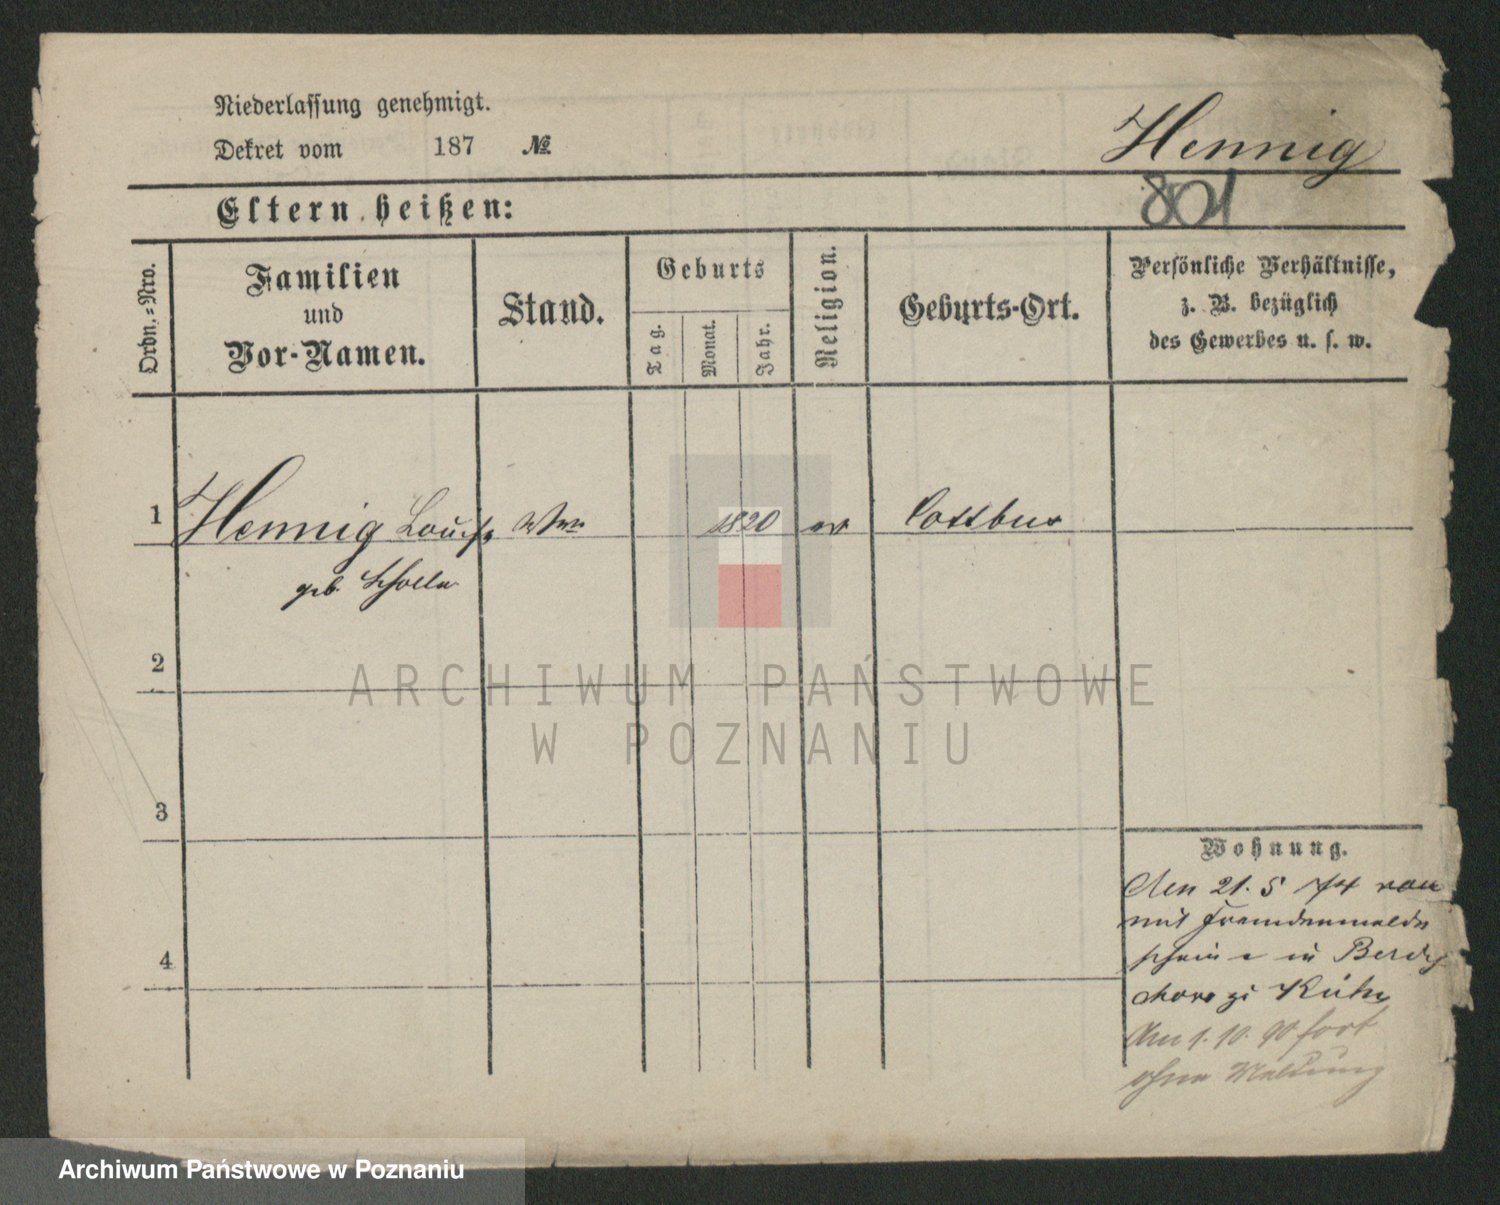 Niederlassung genehmigt.
Dekret vom 187 №
Hennig
801
Eltern heißen:
Ordn.=Nro.
Familien
und
Vor-Namen.
Stand.
Geburts
Tag.
Monat.
Jahr.
Religion.
Geburts-Ort.
Persönliche Verhältnisse,
z. B. bezüglich
des Gewerbes u. s. w.
1 Hennig Louise Wwe 1820 ev Cottbus
geb.
2
ARCHIWUM PAŃSTWOWE
W POZNANIU
3
Wohnung.
Den 21. 5 74 von
mit Fremdenmelde
schein in
zu
4
Am 1. 10. 90 fort
ohne Meldung
Archiwum Państwowe w Poznaniu